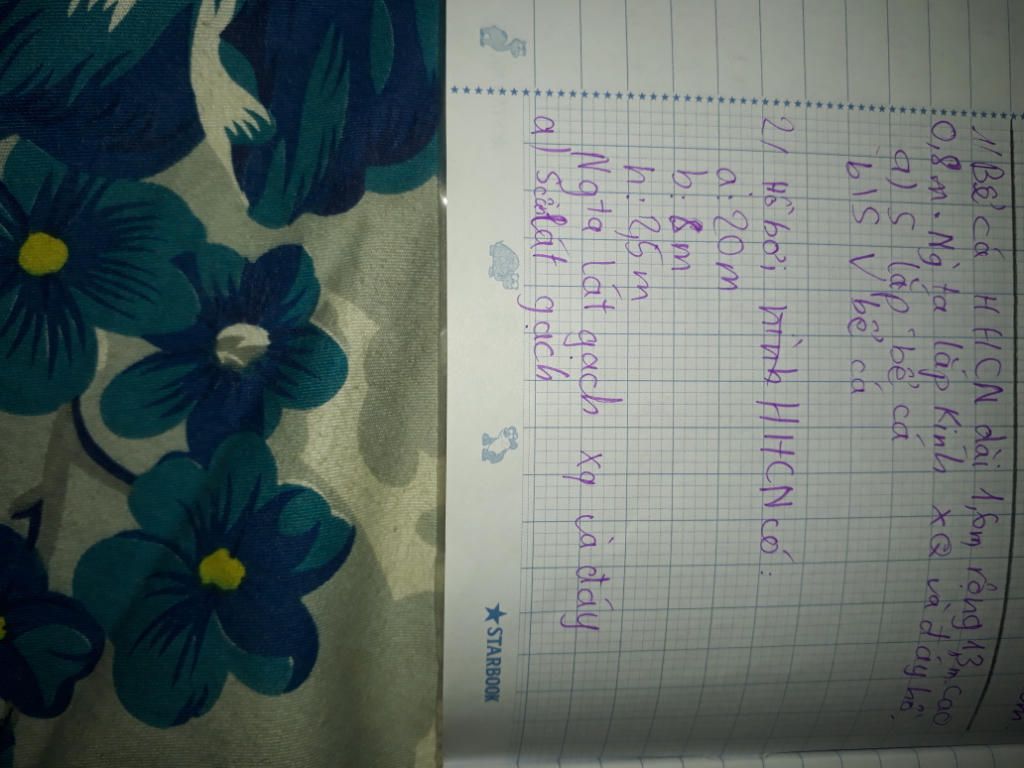 1) Bể cá HHCN dài 1,6m rộng 1,3m cao
0,8 m. Ng ta lắp kính xq và đáy hồ.
a) S lắp bể cá
b) S V bể cá
2) Hồ bơi hình HHCN có:
a: 20m
b: 8m
h: 2,5m
Ng ta lát gạch xq và đáy
a) lát gạch
★ STARBOOK